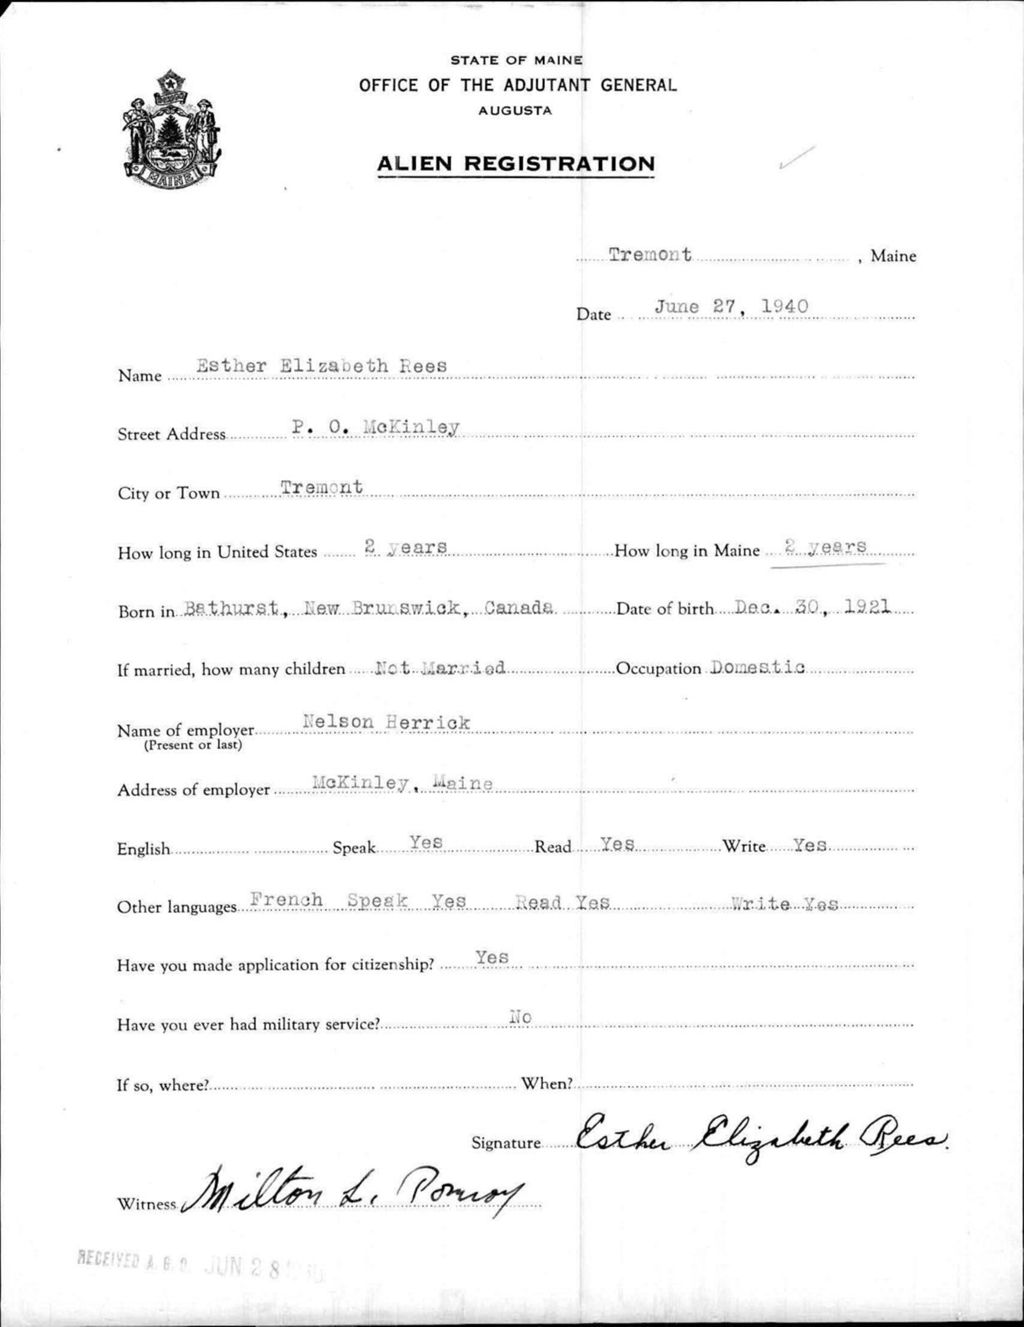 STATE OF MAINE
OFFICE OF THE ADJUTANT GENERAL
AUGUSTA
ALIEN REGISTRATION
MAINE
Tremont, Maine
Date June 27, 1940
Name Esther Elizabeth Rees
Street Address P. O. McKinley
City or Town Tremont
How long in United States 2 years How long in Maine 2 years
Born in Bathurst, New Brunswick, Canada Date of birth Dec. 30, 1921
If married, how many children Not Married Occupation Domestic
Name of employer Nelson Herrick
(Present or last)
Address of employer McKinley, Maine
English Speak Yes Read Yes Write Yes
Other languages French Speak Yes Read Yes Write Yes
Have you made application for citizenship? Yes
Have you ever had military service? No
If so, where? When?
Signature Esther Elizabeth Rees.
Witness Milton L. Pomroy
RECEIVED A. G. O. JUN 28